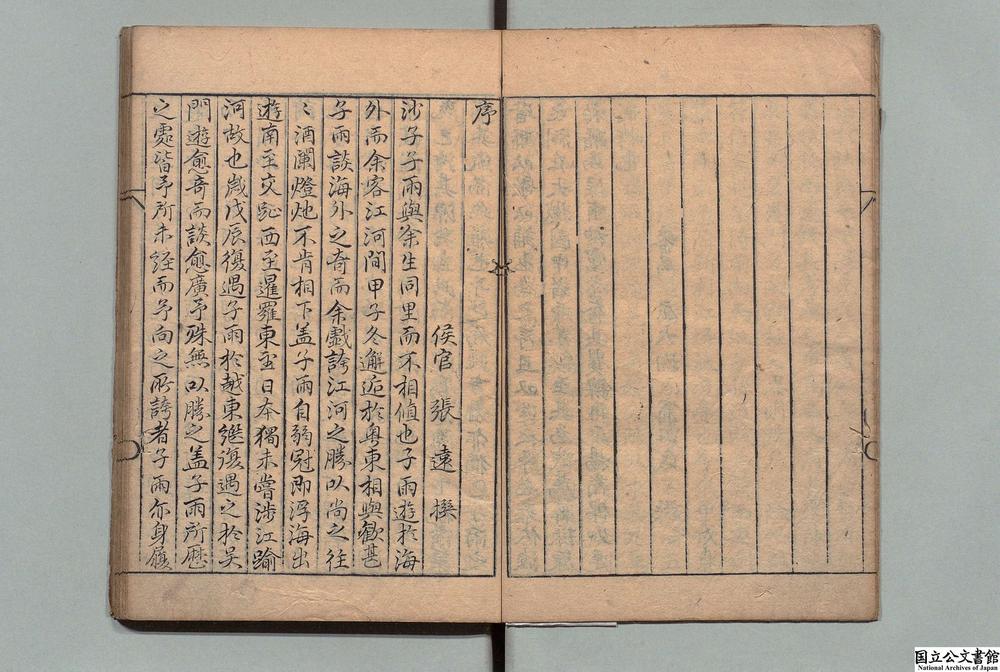 序
侯官 張遠 撰
沙子子雨與余生同里而不相值也子雨遊於海
外而余客江河間甲子冬邂逅於粤東相與歡甚
子雨談海外之奇而余戲誇江河之勝以尚之往
〻酒闌燈灺不肯相下盖子雨自弱冠即浮海出
遊南至交趾西至暹羅東至日本獨未嘗涉江踰
河故也歲戊辰復遇子雨於越東繼復遇之於吴
門遊愈奇而談愈廣予殊無以勝之盖子雨所歴
之處皆予所未經而予向之所誇者子雨亦身履
国立公文書館
National Archives of Japan